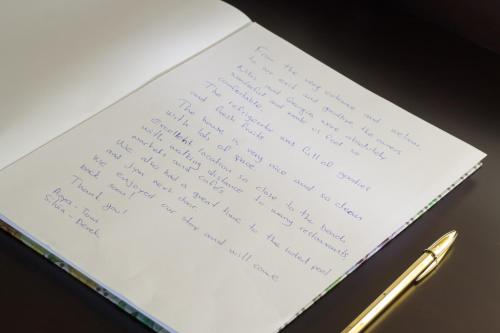 From the very entrance and welcome
to our exit and goodbye the owners
Nikos and Georgia were absolutely
wonderful and made us feel so
comfortable.
The refrigerator was full of goodies
and fresh fruits
The house is very nice and so clean
with lots of space
excellent location so close to the beach
with walking distance to many restaurants
markets and cafes
We also had a great time to the hotel pool
and gym next door
We enjoyed our stay and will come
back soon!
Thank you!
Toni
Silvia - Derek